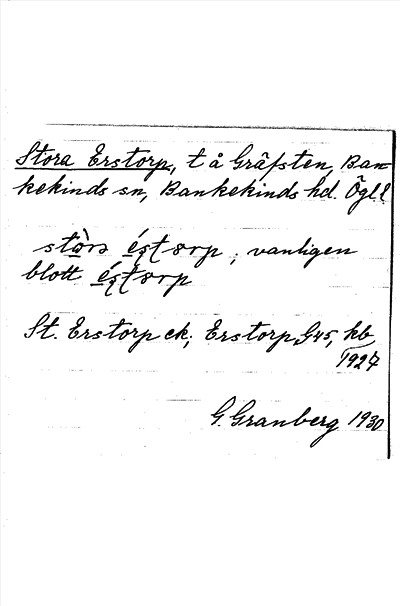 Stora Erstorp, t å Gräfsten, Ban-
kekinds sn, Bankekinds hd. Ögl.
vanligen
blott
St. Erstorp ek; Erstorp, G45, kb
1927
G. Granberg 1930